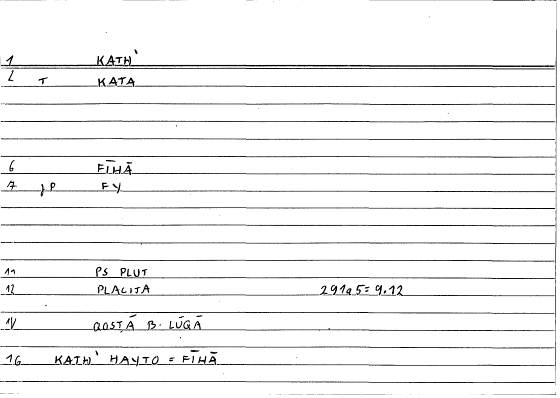 1 KATH'
2 T KATA
6 FĪHĀ
7 jP FY
11 PS PLUT
12 PLACITA 291a5=9.12
14 QOSṬĀ B. LŪQĀ
16 KATH' HAYTO = FĪHĀ